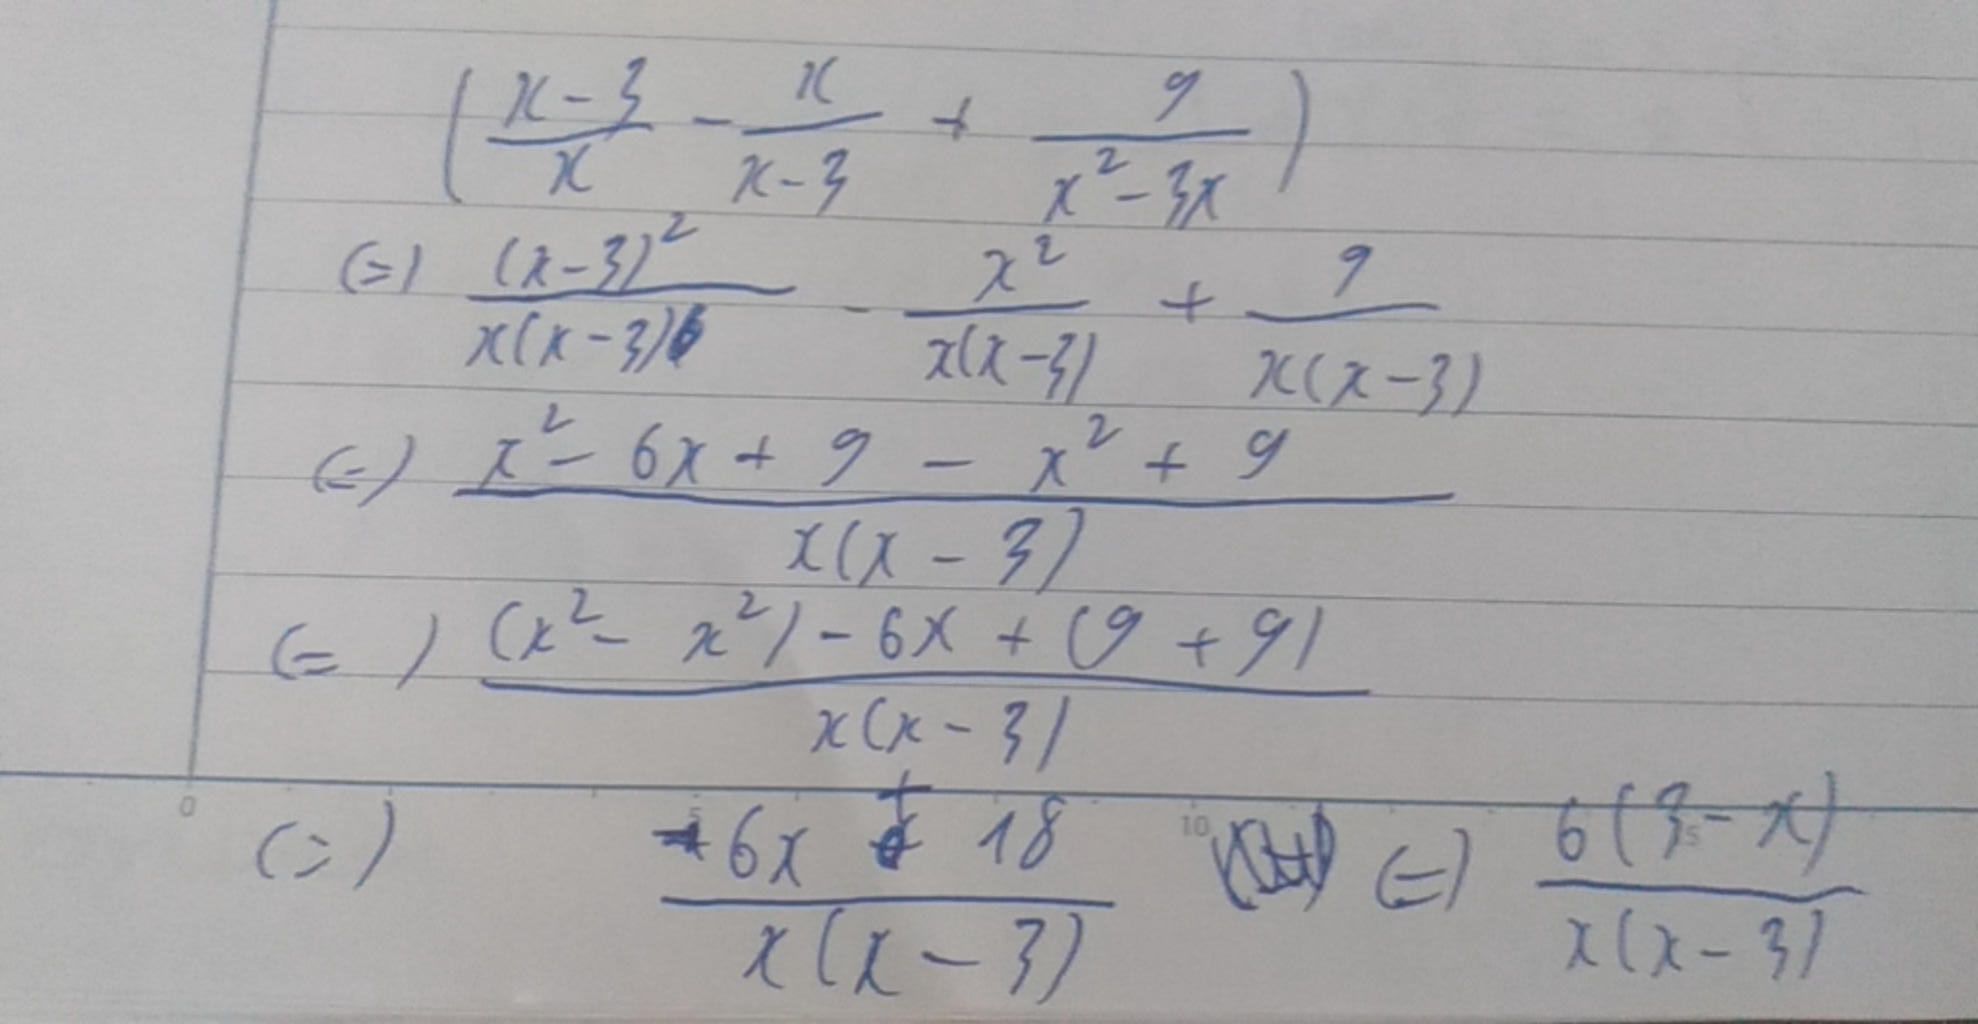 ( (x-3)/x - x/(x-3) + 9/(x²-3x) )
(=) (x-3)²/x(x-3) - x²/x(x-3) + 9/x(x-3)
(=) (x² - 6x + 9 - x² + 9)/x(x-3)
(=) ((x² - x²) - 6x + (9 + 9))/x(x-3)
0 5 10 15
(=) (-6x + 18)/x(x-3) (=) 6(3-x)/x(x-3)